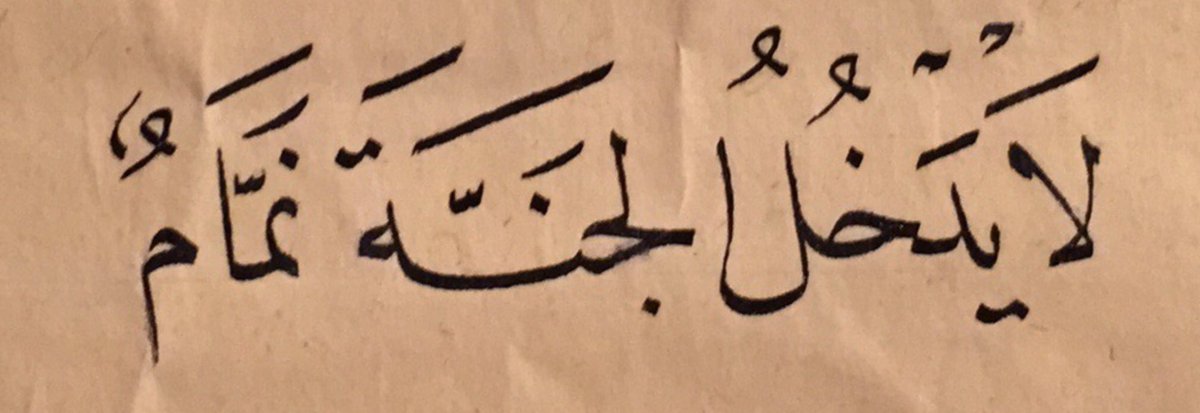 لَا يَدْخُلُ الْجَنَّةَ نَمَّامٌ